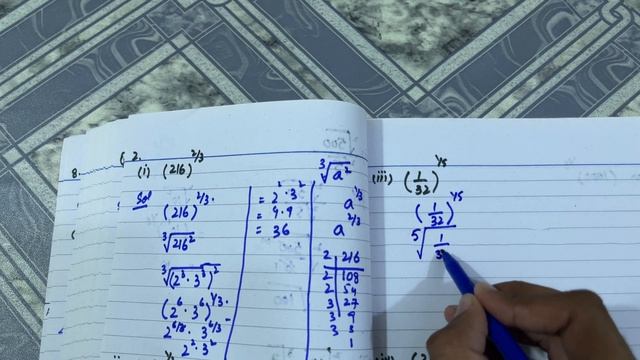 8. 6 2.
(i) (216)^2/3
Sol (216)^2/3.
∛216²
∛(2³·3³)²
(2⁶·3⁶)^1/3.
2^6/3·3^6/3
2²·3²
= 2²·3²
= 4·9
= 36
∛a²
a^1/3
a^2/3
2 216
2 108
2 54
3 27
3 9
3 3
1
(iii) (1/32)^1/5
(1/32)^1/5
⁵√1/3